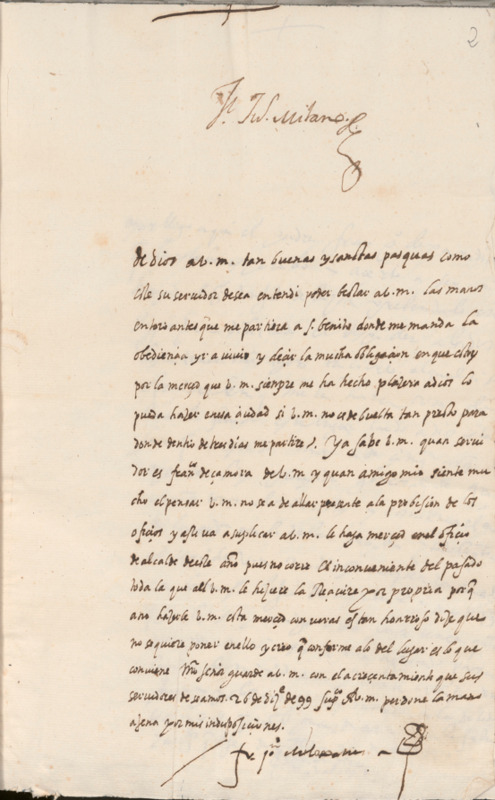 2
de dios a v. m. tan buenas y sanctas pasquas como
este su servidor desea entendi poder besar a v. m. las manos
antes que me partiera a s. benito donde me manda la
obediencia yr a vivir y deçir la mucha obligaçion en que estoy
por la merçed que v. m. siempre me ha hecho plazera a dios lo
pueda hazer en esa çiudad si v. m. no es de buelta tan presto para
donde dentro de tres dias me partire. Ya sabe v. m. quan servi
dor es fran.co de çamora de v. m. y quan amigo mio siente mu
cho el pensar v. m. no se a de allar presente a la probision de los
ofiçios y asi va a suplicar a v. m. le haga merçed en el ofiçio
de alcalde deste año pues no corre el inconveniente del pasado
toda la que alli v. m. le hiziere la reçivire por propria porq
a no hazerle v. m. esta merçed con veras es tan honrroso dize que
no se quiere poner en ello y creo q conforme a lo del lugar es lo que
conviene nro señor guarde a v. m. con el acreçentamiento que sus
servidores deseamos. 26 de diz.e de 99 sup.co a v. m. perdone la mano
agena por mis indisposiçiones.